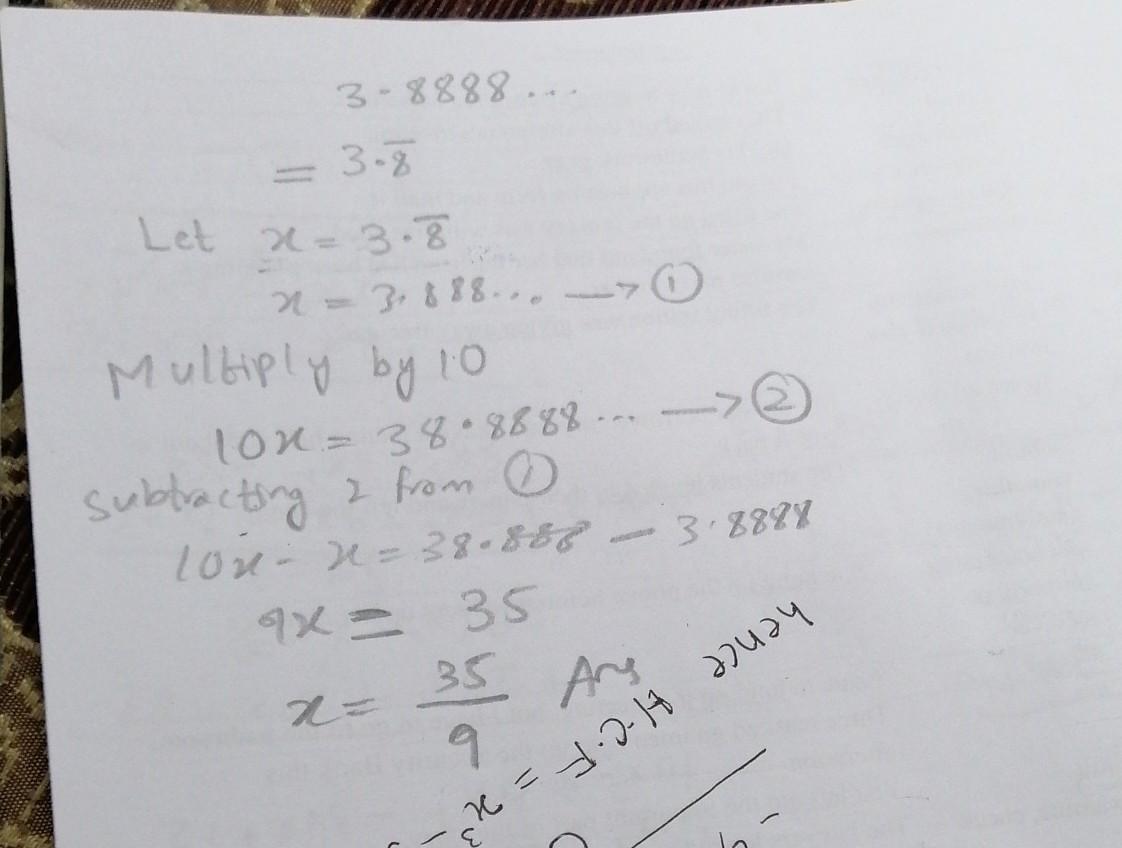 3.8888...
= 3.8̅
Let x = 3.8̅
x = 3.888... → ①
Multiply by 10
10x = 38.8888... → ②
Subtracting 2 from ①
10x - x = 38.888 - 3.8888
9x = 35
x = 35/9 Ans
hence H.C.F = x³ -